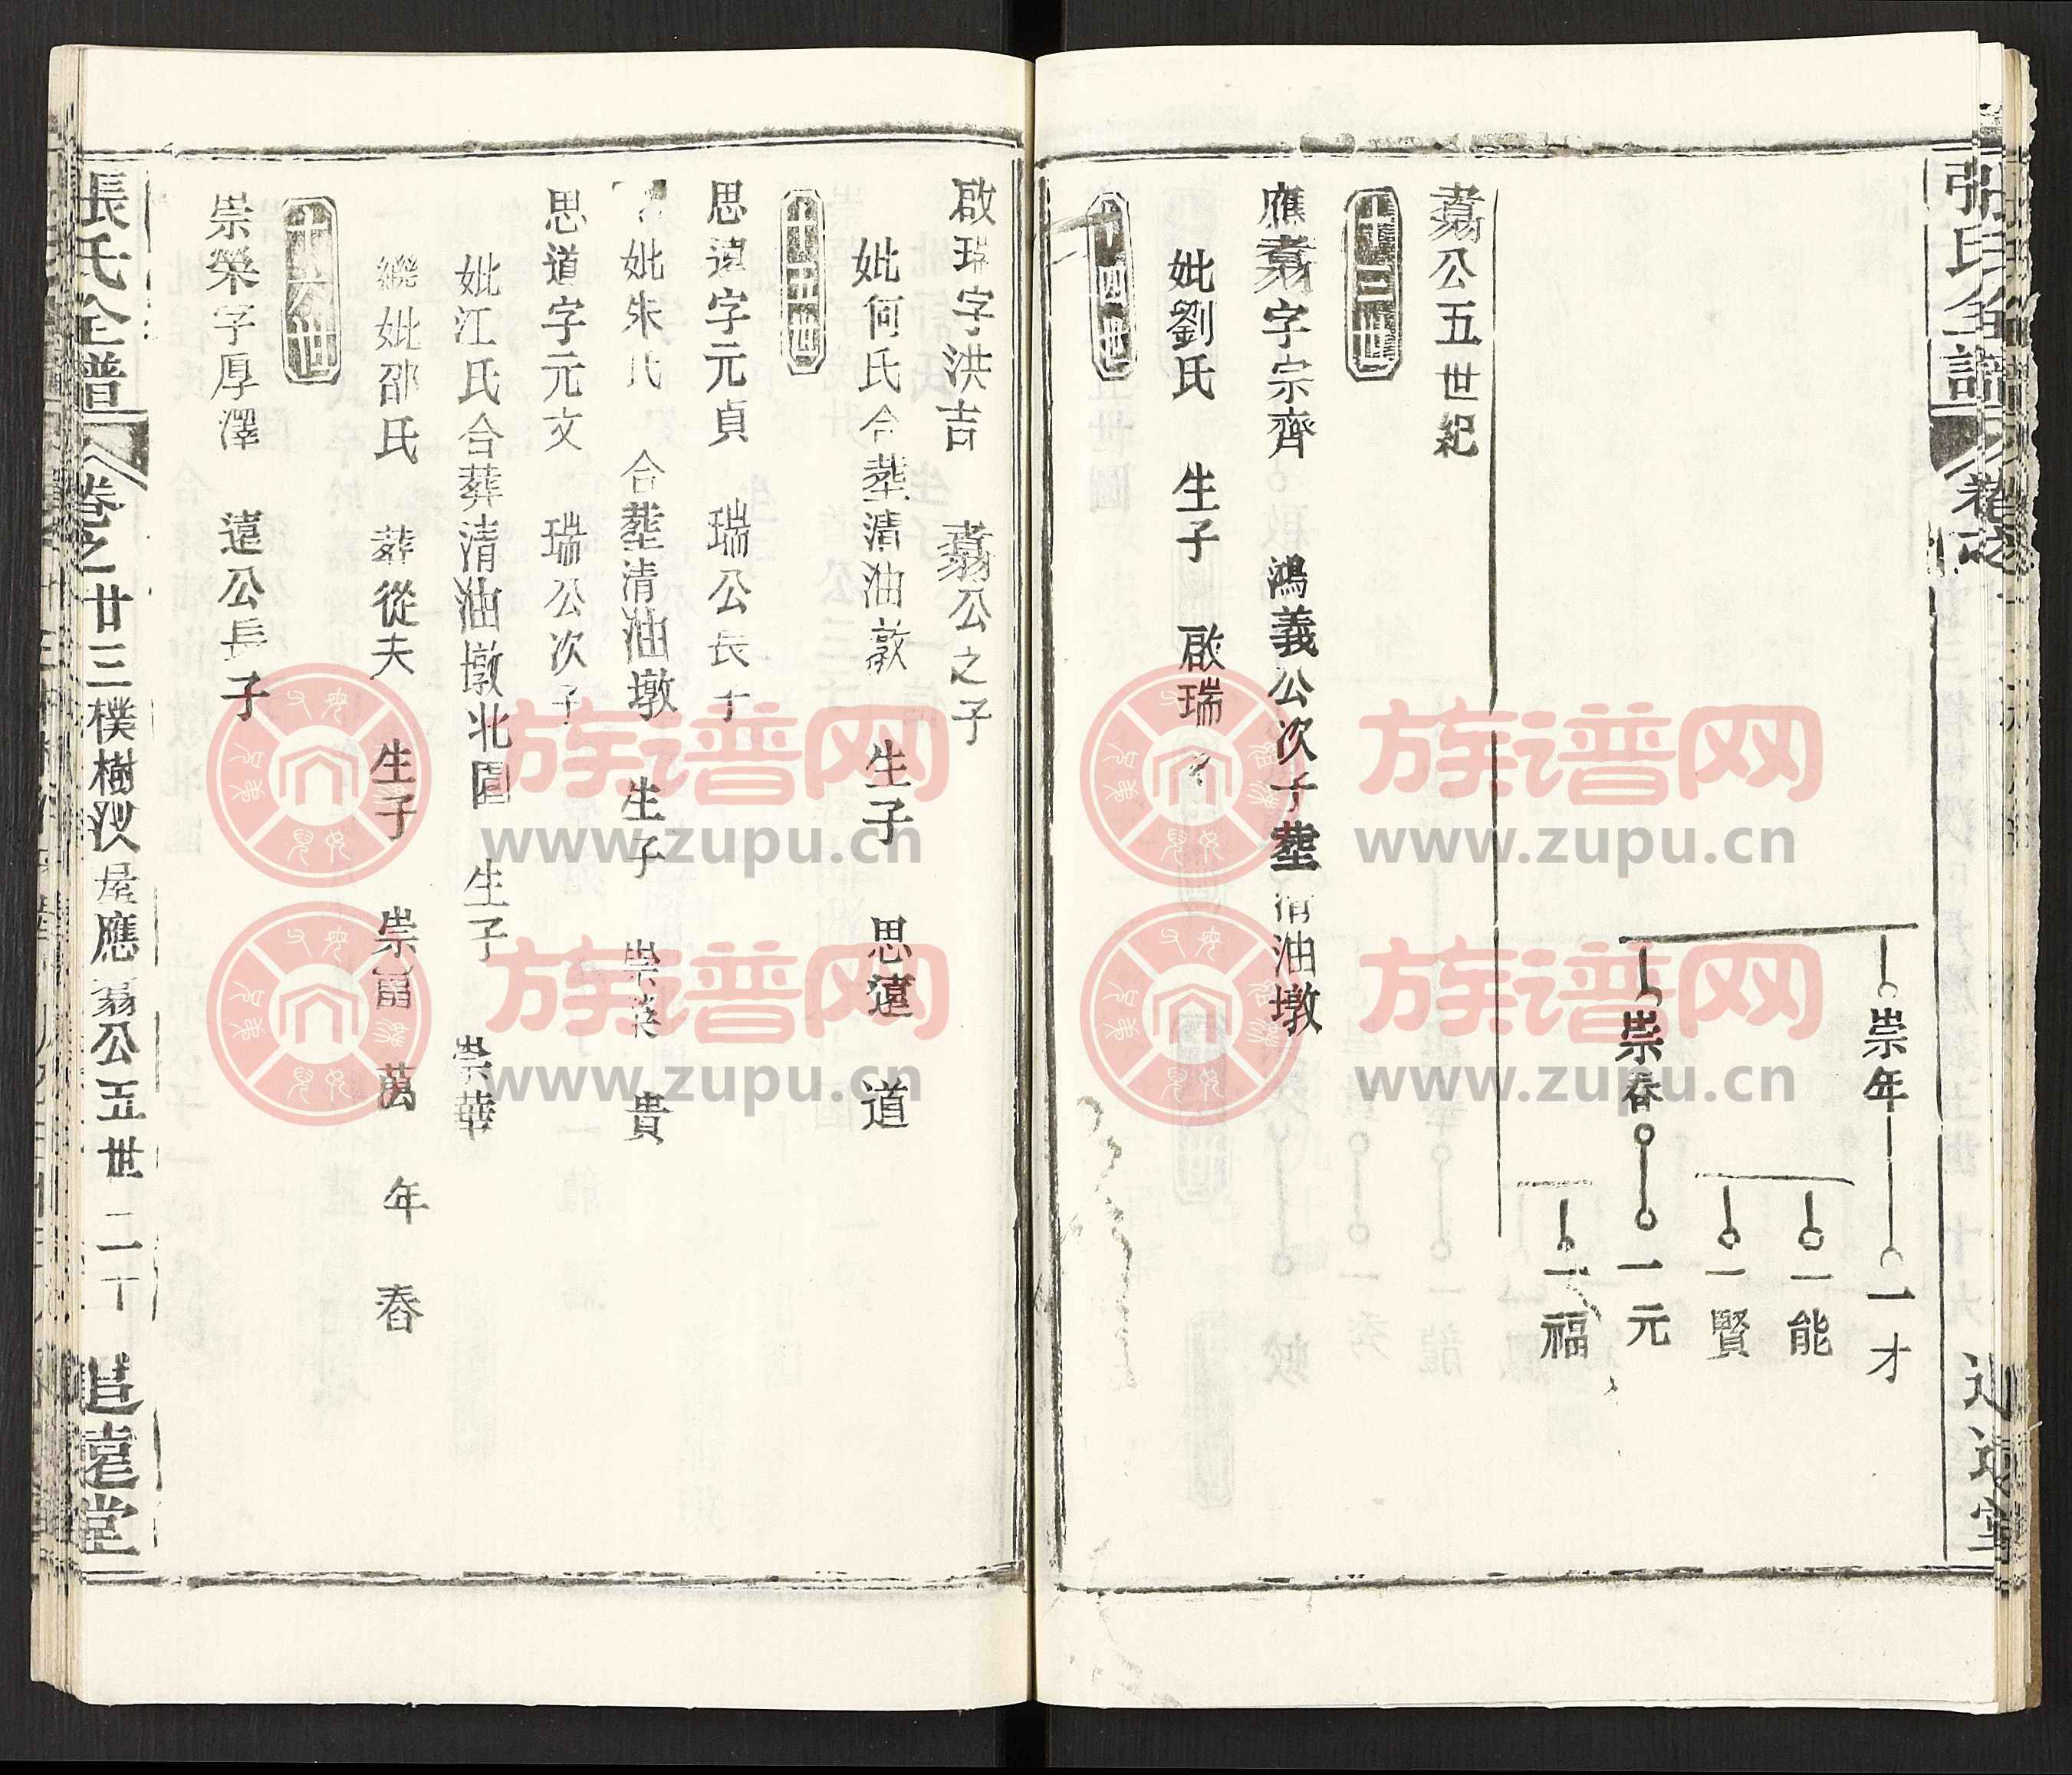 張氏全譜
崇年 一才
一能
一賢
崇春 一元
一福
翥公五世紀
十三世
應翥字宗齊 鴻義公次子塟清油墩
妣劉氏 生子 啟瑞
十四世
啟瑞字洪吉 翥公之子
妣何氏合塟清油墩 生子 思遠 道
十五世
思遠字元貞 瑞公長子
妣朱氏 合塟清油墩 生子 崇榮 貴
思道字元文 瑞公次子
妣江氏合葬清油墩北園 生子 崇華
繼妣邵氏 葬從夫 生子 崇富 萬 年 春
十六世
崇榮字厚澤 遠公長子
張氏全譜 卷之廿三樸樹汊屋應翥公五世 二十 追遠堂
族谱网
www.zupu.cn
族谱网
www.zupu.cn
族谱网
www.zupu.cn
族谱网
www.zupu.cn